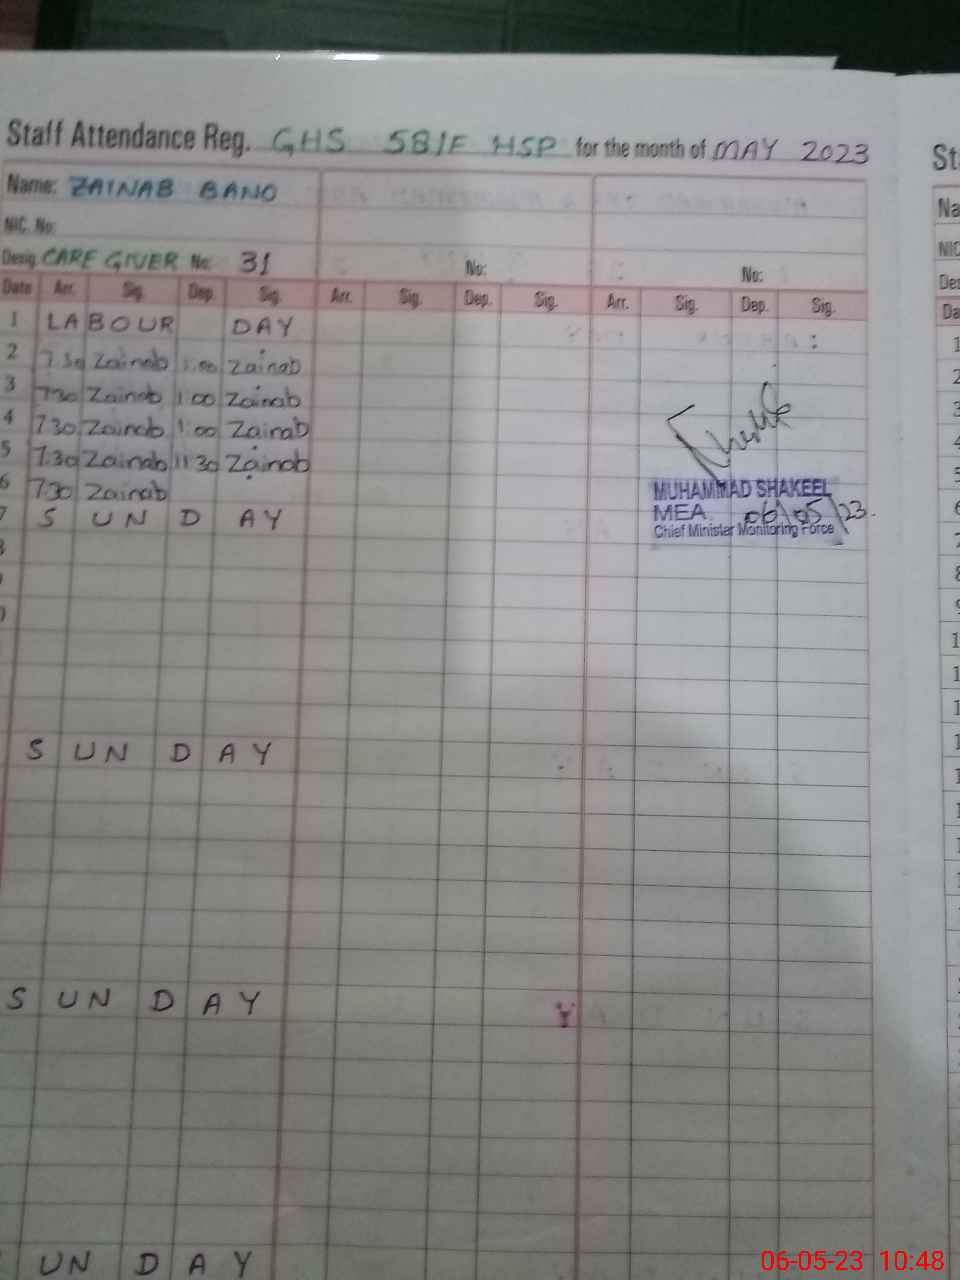 Staff Attendance Reg. GHS 581E HSP for the month of MAY 2023
Name: ZAINAB BANO
NIC. No:
Desig. CARE GIVER No: 31 No: No:
Date Arr. Sig. Dep. Sig. Arr. Sig. Dep. Sig. Arr. Sig. Dep. Sig.
1 LABOUR DAY
2 7.30 Zainab 1:00 Zainab
3 7.30 Zainab 1:00 Zainab
4 7.30 Zainab 1:00 Zainab
5 7.30 Zainab 11:30 Zainab
6 7.30 Zainab
MUHAMMAD SHAKEEL
MEA 06/05/23.
Chief Minister Monitoring Force
7 SUNDAY
SUNDAY
SUNDAY
UNDAY
St
Na
NIC
Des
Da
1
2
3
4
5
6
7
8
9
06-05-23 10:48